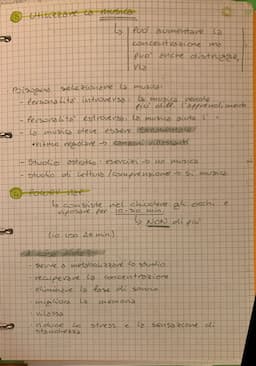 ⑤ Utilizzare la musica
↳ Può aumentare la
concentrazione ma
può anche distruggerla,
Bisogna selezionare la musica:
- Personalità introversa: la musica perché
più diff. l'apprendimento
- Personalità estroversa: la musica aiuta
- la musica deve essere
• ritmo regolare →
- Studio astratto: esercizi → no musica
- studio di lettura/comprensione → sì musica
⑥ Power nap
↳ consiste nel chiudere gli occhi e
riposare per 10-30 min.
↳ NON di più
(io uso 20 min)
- serve a metabolizzare lo studio
- recuperare la concentrazione
- diminuisce la fase di sonno
- migliora la memoria
- rilassa
- riduce lo stress e la sensazione di
stanchezza